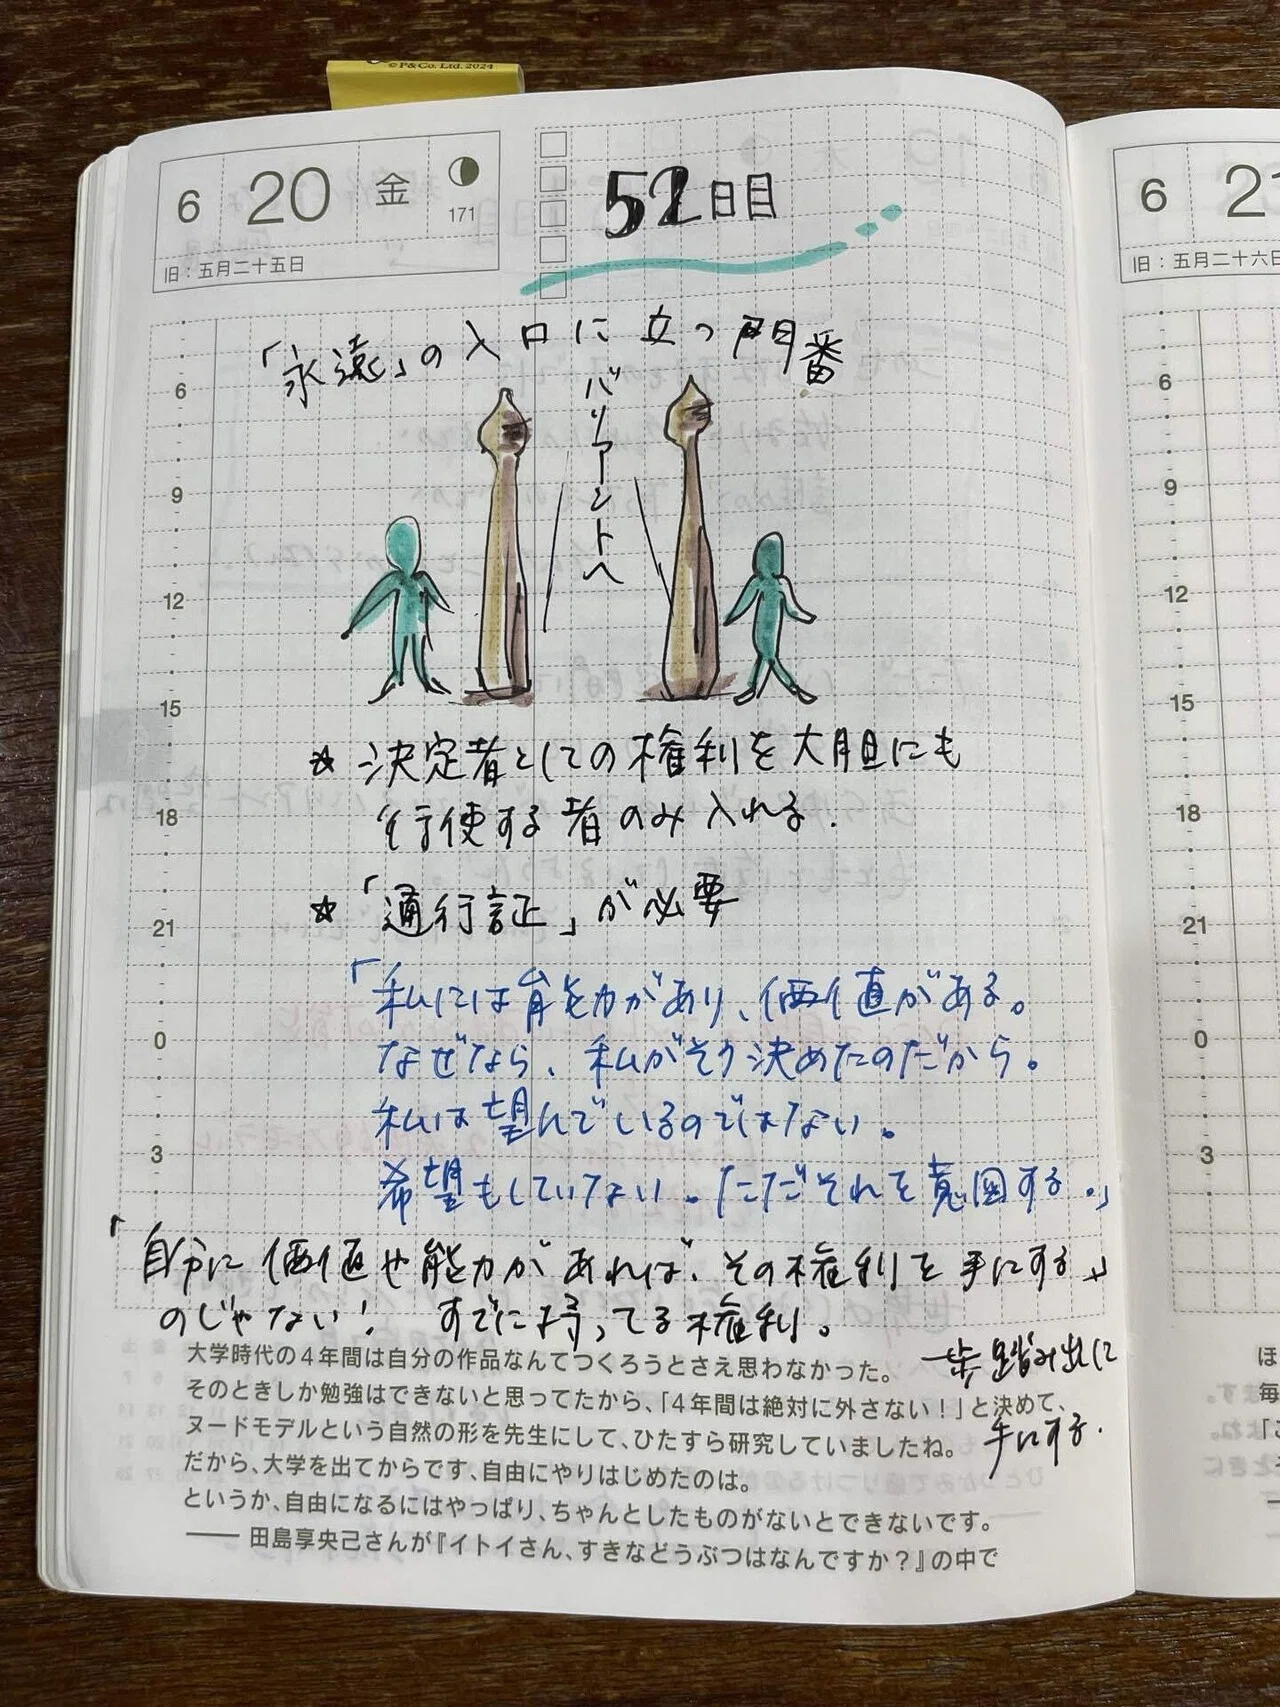 ©P&Co. Ltd. 2024
6 20 金
171
旧：五月二十五日
52日目
「永遠」の入口に立つ門番
バリアントへ
6
9
12
15
18
21
0
3
☆ 決定者としての権利を大胆にも
行使する者のみ入れる.
☆ 「通行証」が必要
「私には能力があり、価値がある。
なぜなら、私がそう決めたのだから。
私は望んでいるのではない。
希望もしていない。ただそれを意図する。」
「自分に価値や能力があれば、その権利を手にする」
のじゃない! すでに持ってる権利。
一歩踏み出して
手にする.
大学時代の4年間は自分の作品なんてつくろうとさえ思わなかった。
そのときしか勉強はできないと思ってたから、「4年間は絶対に外さない！」と決めて、
ヌードモデルという自然の形を先生にして、ひたすら研究していましたね。
だから、大学を出てからです、自由にやりはじめたのは。
というか、自由になるにはやっぱり、ちゃんとしたものがないとできないです。
—— 田島享央己さんが『イトイさん、すきなどうぶつはなんですか？』の中で
6 21
旧：五月二十六日
6
9
12
15
18
21
0
3
ほ
毎